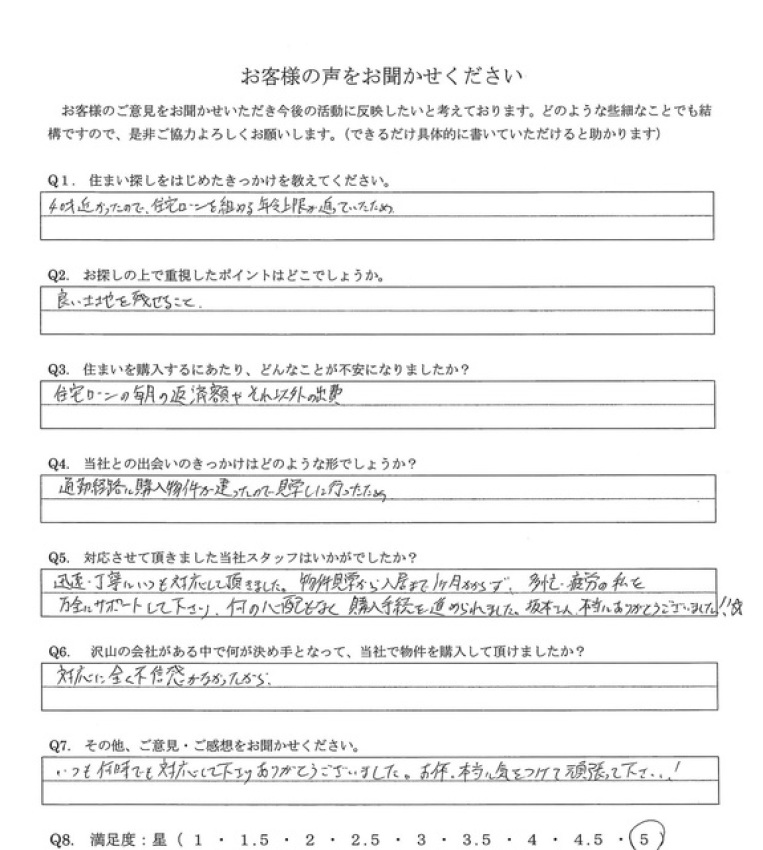 お客様の声をお聞かせください
お客様のご意見をお聞かせいただき今後の活動に反映したいと考えております。どのような些細なことでも結
構ですので、是非ご協力よろしくお願いします。(できるだけ具体的に書いていただけると助かります)
Q1. 住まい探しをはじめたきっかけを教えてください。
40才近かったので、住宅ローンを組める年令上限が迫っていたため
Q2. お探しの上で重視したポイントはどこでしょうか。
良い土地を残せること.
Q3. 住まいを購入するにあたり、どんなことが不安になりましたか?
住宅ローンの毎月の返済額やそれ以外の出費
Q4. 当社との出会いのきっかけはどのような形でしょうか?
通勤経路に購入物件が建ったので見学しに行ったため
Q5. 対応させて頂きました当社スタッフはいかがでしたか?
迅速・丁寧にいつも対応して頂きました。物件見学から入居まで1ヶ月かからず、多忙・疲労の私を
万全にサポートして下さり、何の心配もなく購入手続を進められました、坂本さん、本当にありがとうございました!!☆
Q6. 沢山の会社がある中で何が決め手となって、当社で物件を購入して頂けましたか?
対応に全く不信感がなかったから.
Q7. その他、ご意見・ご感想をお聞かせください。
いつも何時でも対応して下さりありがとうございました。お体、本当に気をつけて頑張って下さい!
Q8. 満足度:星( 1 ・ 1.5 ・ 2 ・ 2.5 ・ 3 ・ 3.5 ・ 4 ・ 4.5 ・ 5 )